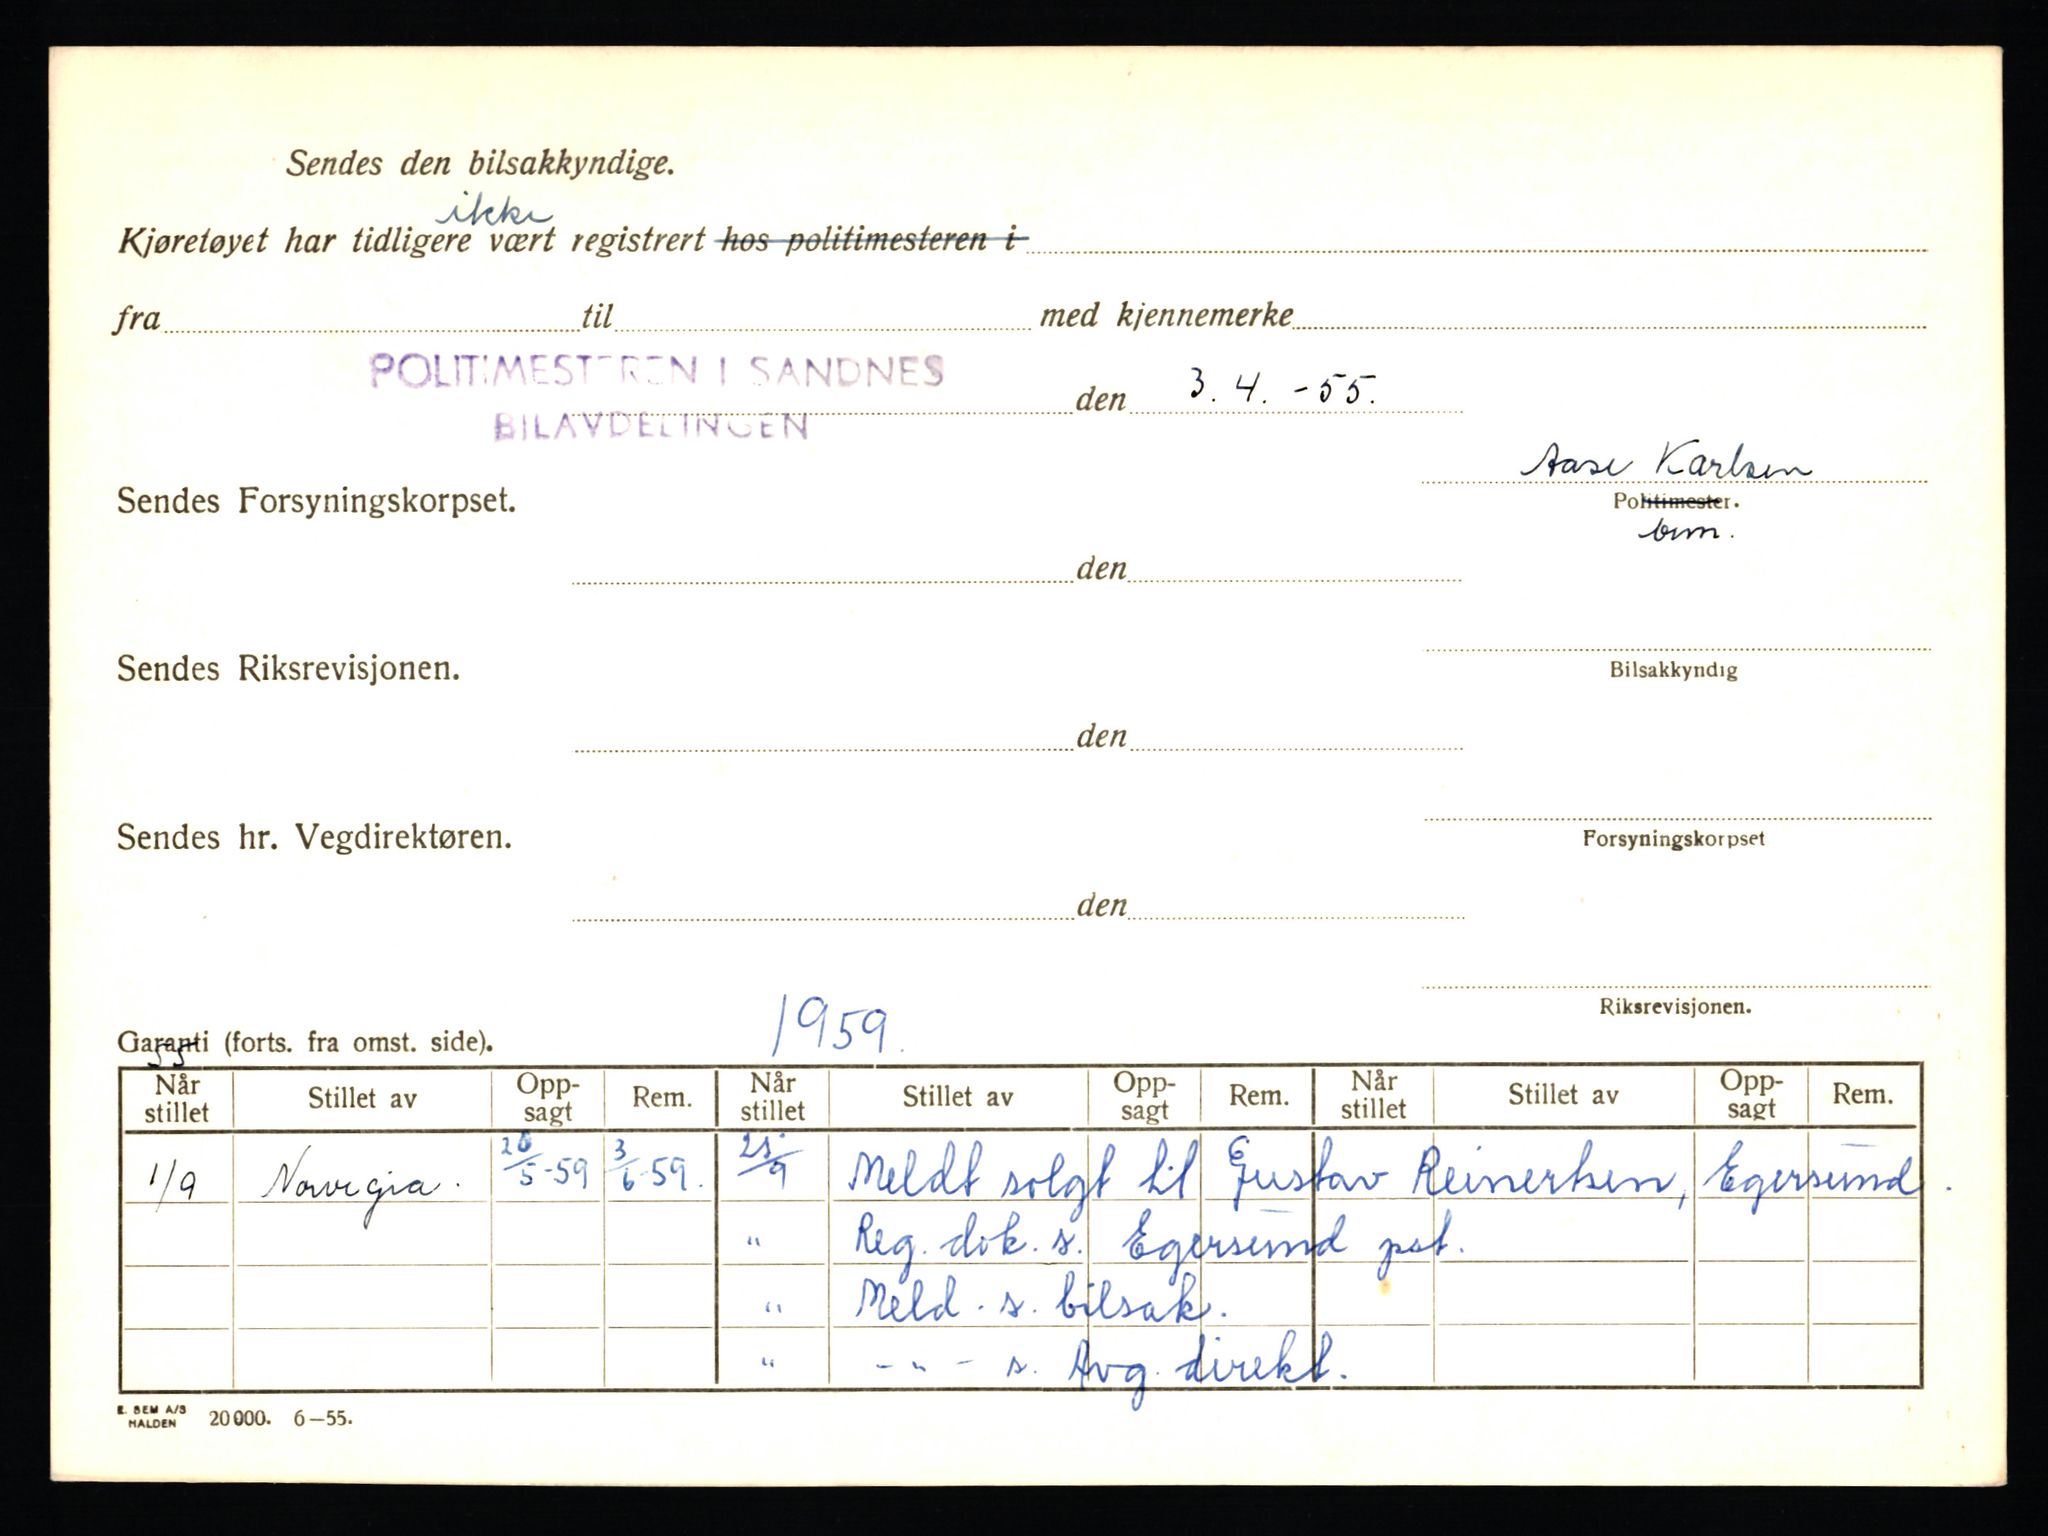 Sendes den bilsakkyndige.
ikke
Kjøretøyet har tidligere vært registrert hos politimesteren i
fra til med kjennemerke
POLITIMESTEREN I SANDNES
BILAVDELINGEN
den 3.4.-55.
Aase Karlsen
Politimester.
bem.
Sendes Forsyningskorpset.
den
Bilsakkyndig
Sendes Riksrevisjonen.
den
Forsyningskorpset
Sendes hr. Vegdirektøren.
den
Riksrevisjonen.
1959.
Garanti (forts. fra omst. side).
55
Når stillet Stillet av Opp-sagt Rem. Når stillet Stillet av Opp-sagt Rem. Når stillet Stillet av Opp-sagt Rem.
1/9 Norvegia. 26/5-59 3/6-59. 25/9 Meldt solgt til Gustav E Reinertsen, Egersund.
" Reg. dok. s. Egersund pst.
" Meld. s. bilsak.
" - " - s. Avg. direkt.
E. SEM A/S
HALDEN
20 000. 6-55.